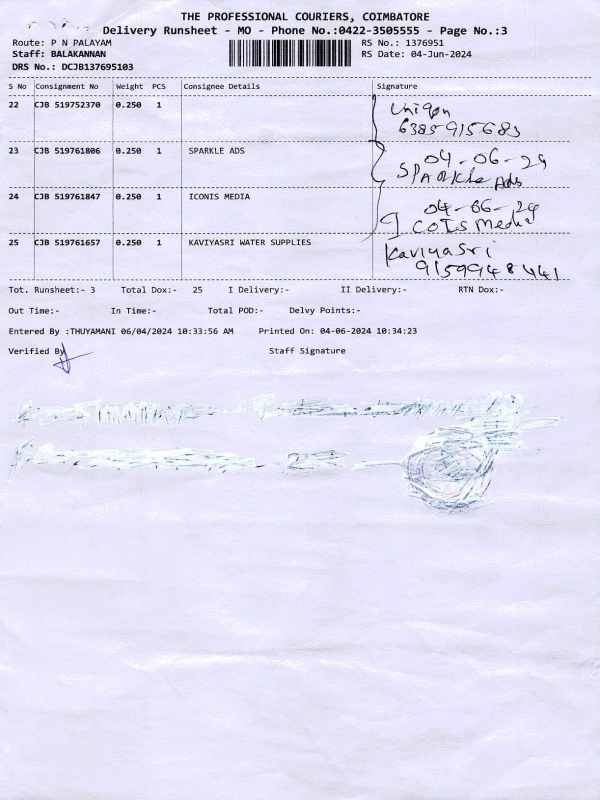 THE PROFESSIONAL COURIERS, COIMBATORE
Delivery Runsheet - MO - Phone No.:0422-3505555 - Page No.:3
Route: P N PALAYAM RS No.: 1376951
Staff: BALAKANNAN RS Date: 04-Jun-2024
DRS No.: DCJB137695103
S No Consignment No Weight PCS Consignee Details Signature
22 CJB 519752370 0.250 1
6385915683
23 CJB 519761806 0.250 1 SPARKLE ADS 04-06-24
SPARKle Ads
24 CJB 519761847 0.250 1 ICONIS MEDIA 04-06-24
Media
25 CJB 519761657 0.250 1 KAVIYASRI WATER SUPPLIES Kaviyasri
9159948441
Tot. Runsheet:- 3 Total Dox:- 25 I Delivery:- II Delivery:- RTN Dox:-
Out Time:- In Time:- Total POD:- Delvy Points:-
Entered By :THUYAMANI 06/04/2024 10:33:56 AM Printed On: 04-06-2024 10:34:23
Verified By Staff Signature